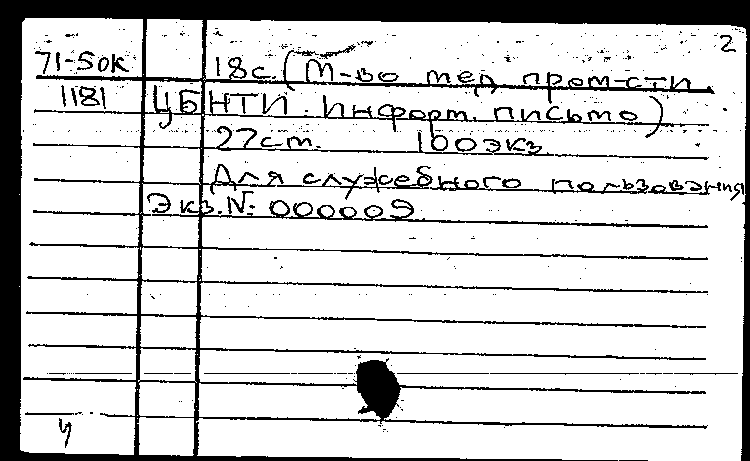 2
71-5ок 18с. (М-во мед. пром-сти.
1181 ЦБНТИ. Информ. письмо)
27ст. 100экз.
Для служебного пользования
Экз.№: 000009.
ч